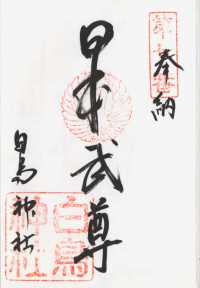 奉納
日本武尊
白鳥神社
白鳥神社